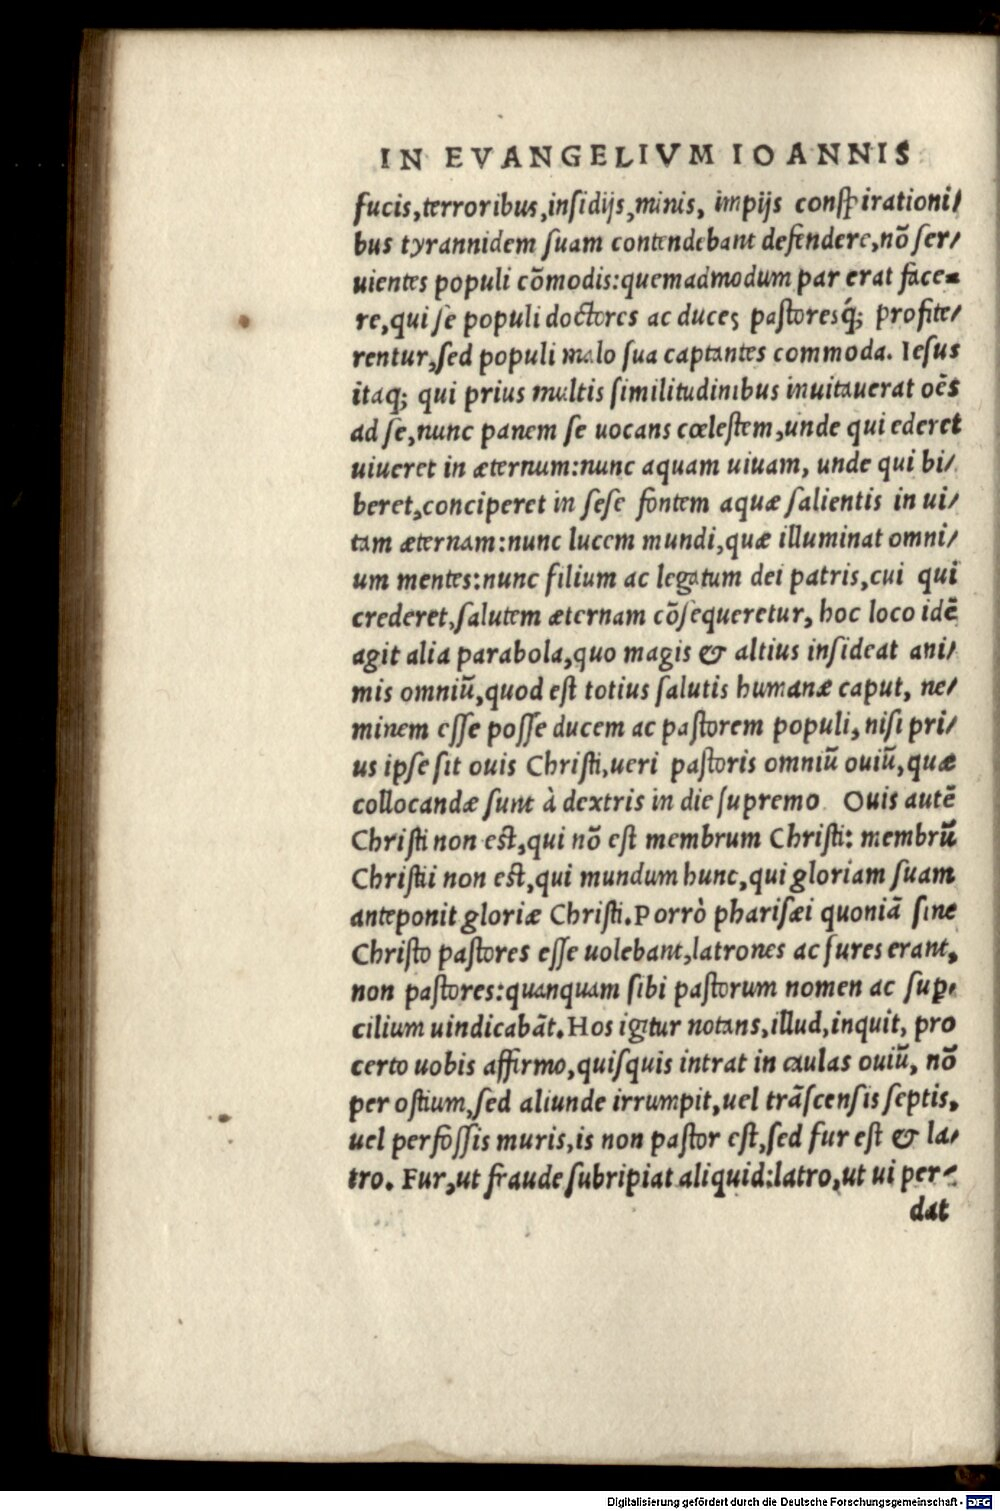 IN EVANGELIVM IOANNIS
fucis,terroribus,insidijs,minis, impijs conspirationi/
bus tyrannidem suam contendebant defendere,nõ ser/
uientes populi cõmodis:quemadmodum par erat face-
re,qui se populi doctores ac duces pastoresq́; profite/
rentur,sed populi malo sua captantes commoda. Iesus
itaq; qui prius multis similitudinibus inuitauerat oẽs
ad se,nunc panem se uocans cœlestem,unde qui ederet
uiueret in æternum:nunc aquam uiuam, unde qui bi/
beret,conciperet in sese fontem aquæ salientis in ui/
tam æternam:nunc lucem mundi,quæ illuminat omni/
um mentes:nunc filium ac legatum dei patris,cui qui
crederet,salutem æternam cõsequeretur, hoc loco idẽ
agit alia parabola,quo magis & altius insideat ani/
mis omniũ,quod est totius salutis humanæ caput, ne/
minem esse posse ducem ac pastorem populi, nisi pri/
us ipse sit ouis Christi,ueri pastoris omniũ ouiũ,quæ
collocandæ sunt à dextris in die supremo. Ouis autẽ
Christi non est,qui nõ est membrum Christi: membrũ
Christii non est,qui mundum hunc,qui gloriam suam
anteponit gloriæ Christi.Porrò pharisæi quoniã sine
Christo pastores esse uolebant,latrones ac fures erant,
non pastores:quanquam sibi pastorum nomen ac sup.
cilium uindicabãt.Hos igitur notans,illud,inquit, pro
certo uobis affirmo,quisquis intrat in caulas ouiũ, nõ
per ostium,sed aliunde irrumpit,uel trãscensis septis,
uel perfossis muris,is non pastor est,sed fur est & la/
tro. Fur,ut fraude subripiat aliquid:latro,ut ui per-
dat
Digitalisierung gefördert durch die Deutsche Forschungsgemeinschaft - DFG